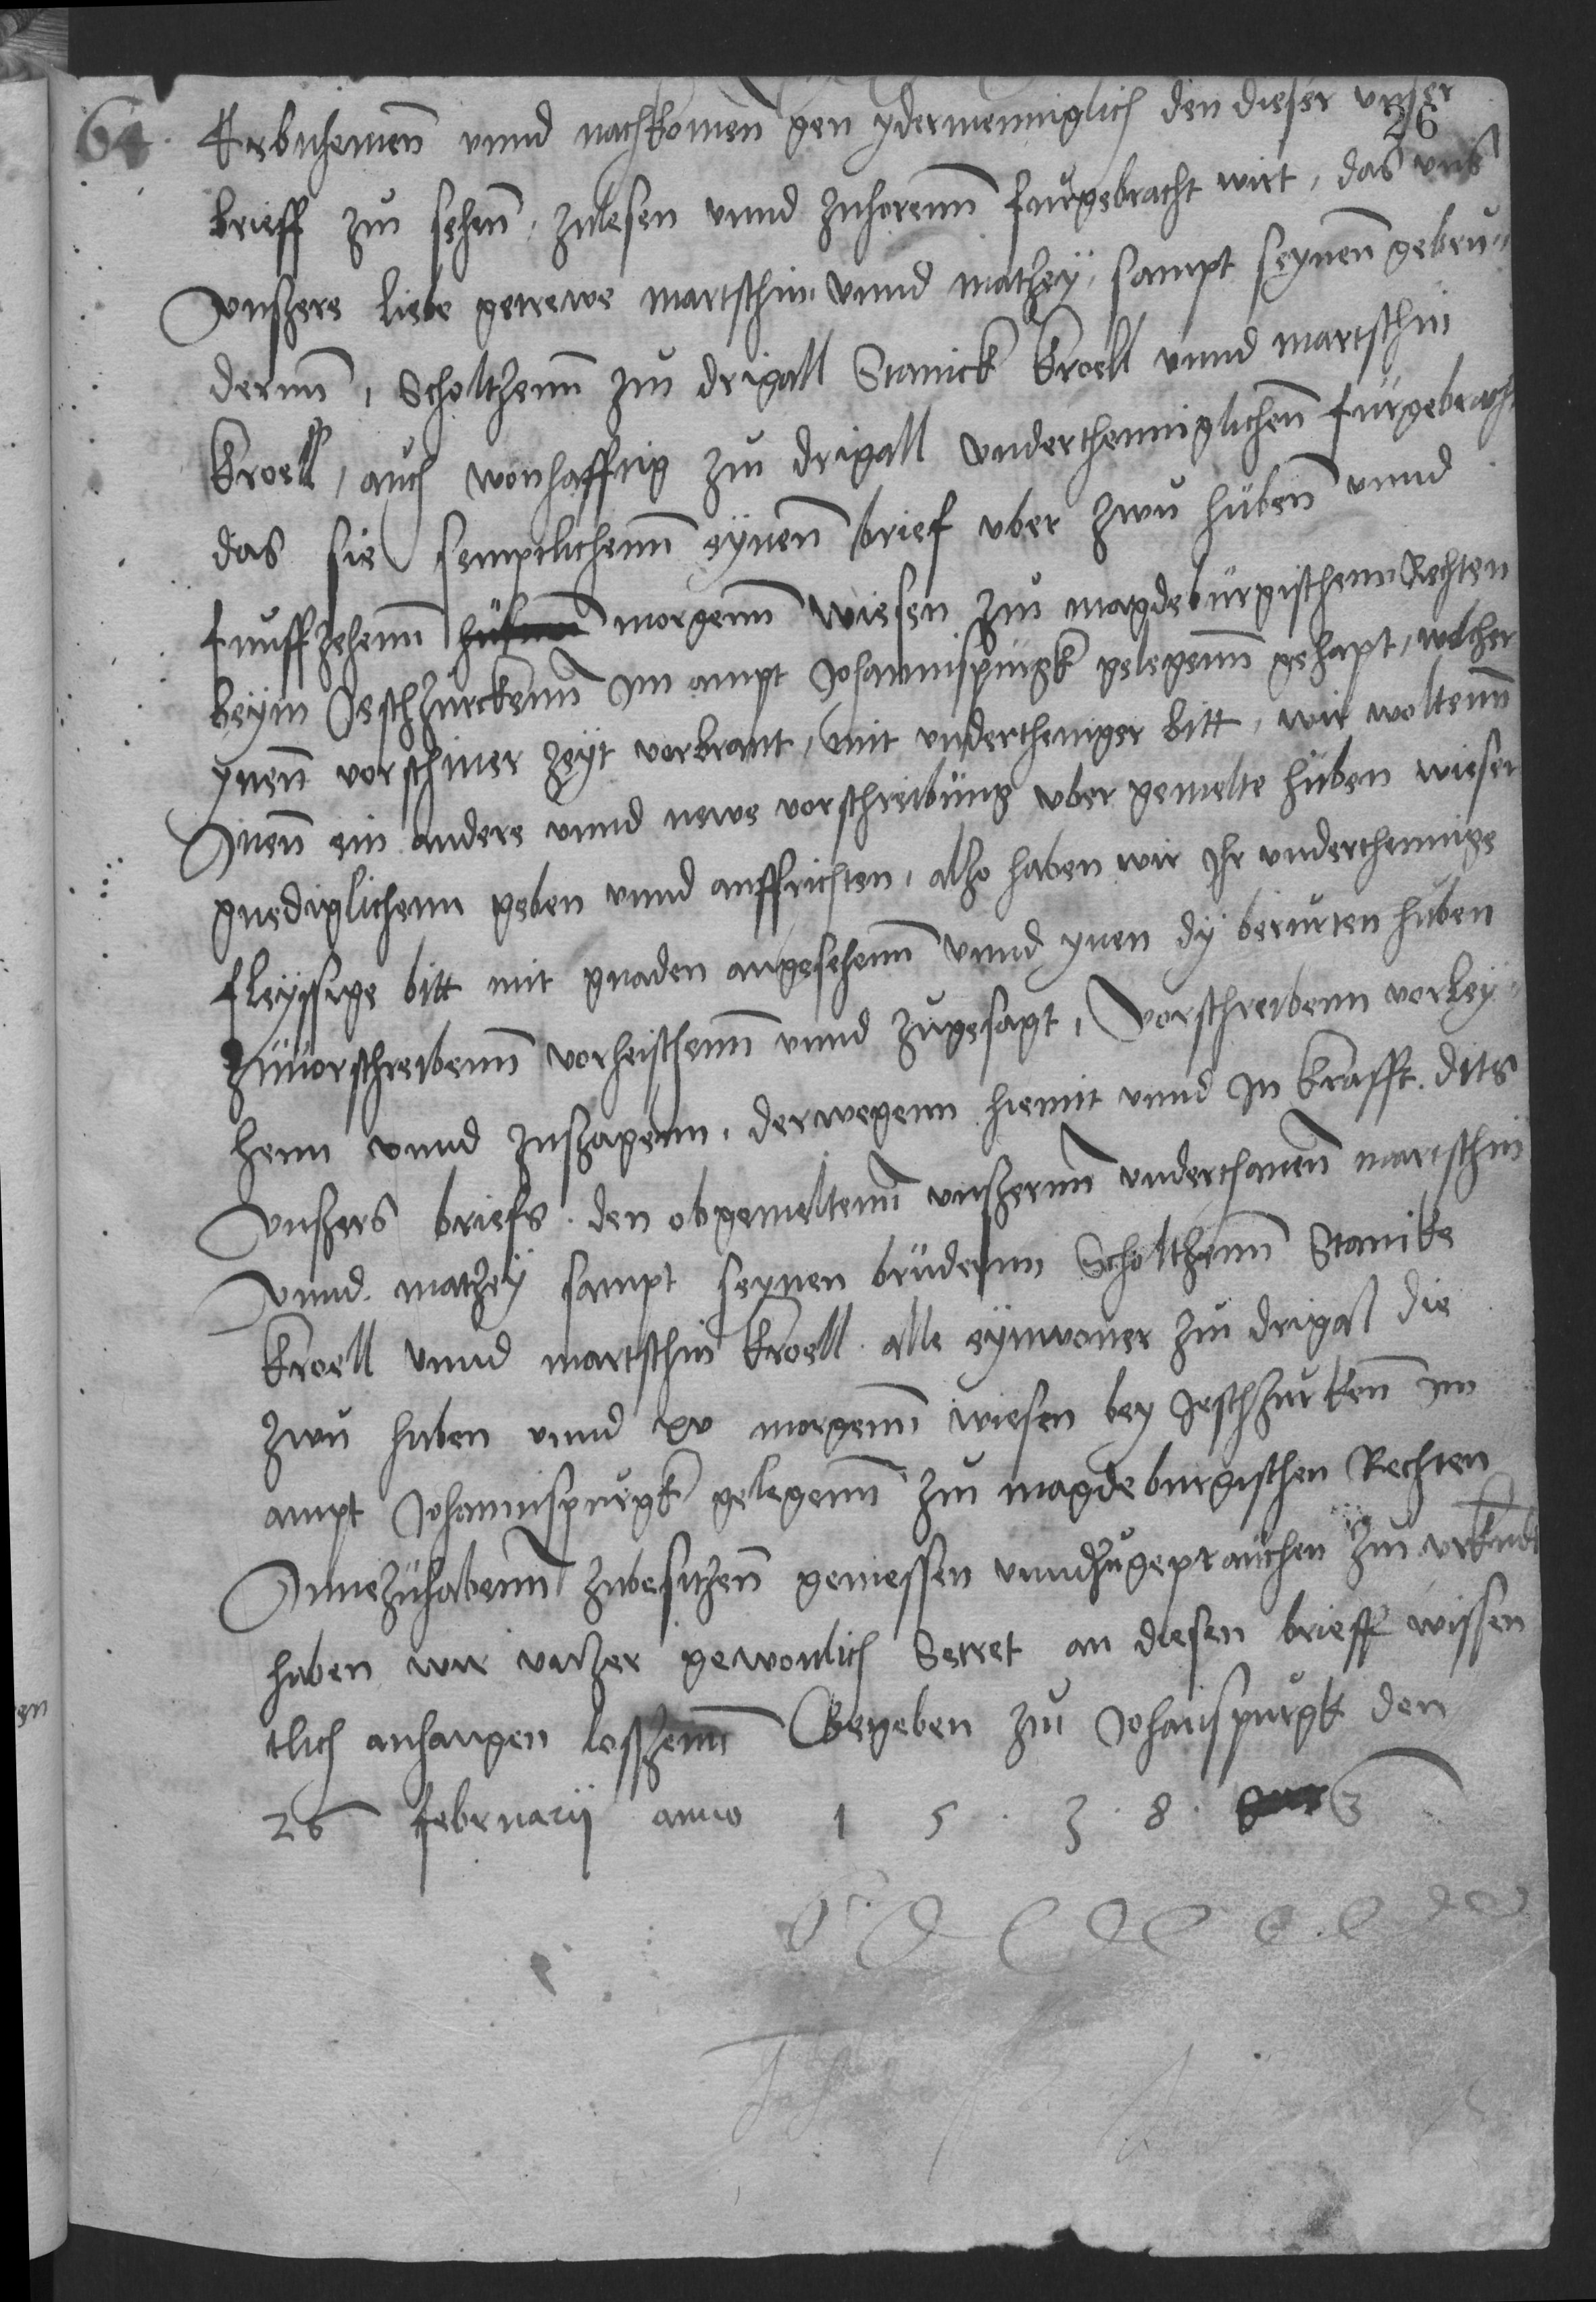 64
26
Erbnhemenn vnnd nachkomen gen ydermenniglich den dieser vnser
brieff zu sehen, zulesen vnnd zuhorenn furgebracht wirt, das vns
vnszere liebe getrewe martschin vnnd mathey, sampt seynenn gebru„
dernn, Scholtzenn zu drigall Stanick Kroell vnnd martschin
Kroell, auch wonhafftig zu drigall vnderthenniglichenn furgebracht
das sie semptlichenn eynenn brief vber zwu huben vnnd
funffzehenn morgenn wiesen zu magdeburgischenn Rechten
beym Jeschzurckenn Im ampt Johannispurgk gelegenn gehapt, welcher
ynenn vorschiner zeyt vorbrant, mit vndertheniger bitt, wir woltenn
Inenn ein andere vnnd newe vorschreibung vber gemelte huben wiesen
gnediglichenn geben vnnd auffrichten, also haben wir Ihr vnderthennige
fleyssige bitt mit gnaden angesehenn vnnd ynen dy berurten huben
zuuorschreibenn vorheischenn vnnd zugesagt, Vorschreibenn vorley„
henn vnnd zuszagenn, derwegenn hiemit vnnd In krafft dits
vnszers briefs den obgemeltenn vnszernn vnderthanenn martschin
vnnd mathey sampt seynen brudernn Scholtzenn Stanike
Kroell vnnd martschin Kroell alle eynwoner zu drigal die
zwu huben vnnd xv morgenn wiesen bey Jeschzurkenn im
ampt Johannispurgk gelegenn zu magdeburgischen Rechten
Innezuhabenn zubesitzenn geniessen vnnd zugeprauchen zu urkundt
haben wir vnszer gewonlich Secret an diesen brieff wissen
tlich anhangen loszenn Gegeben zu Johanspurgk den
26 februarij anno 1 5 3 8